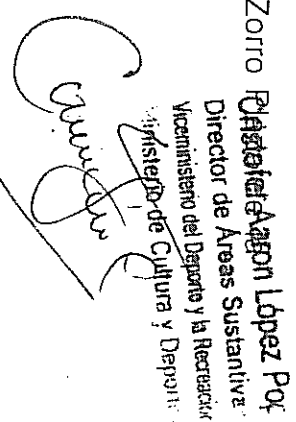 Zorro Aaron López Por
Director de Áreas Sustantiva
Viceministerio del Deporte y la Recreación
Ministerio de Cultura y Deport